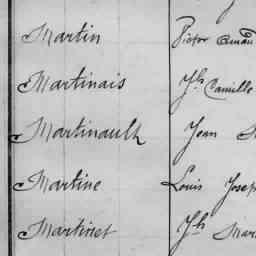 Martin Victor Amand
Martinais Jh Camille
Martinault Jean
Martine Louis Josep
Martinet Jh Mar